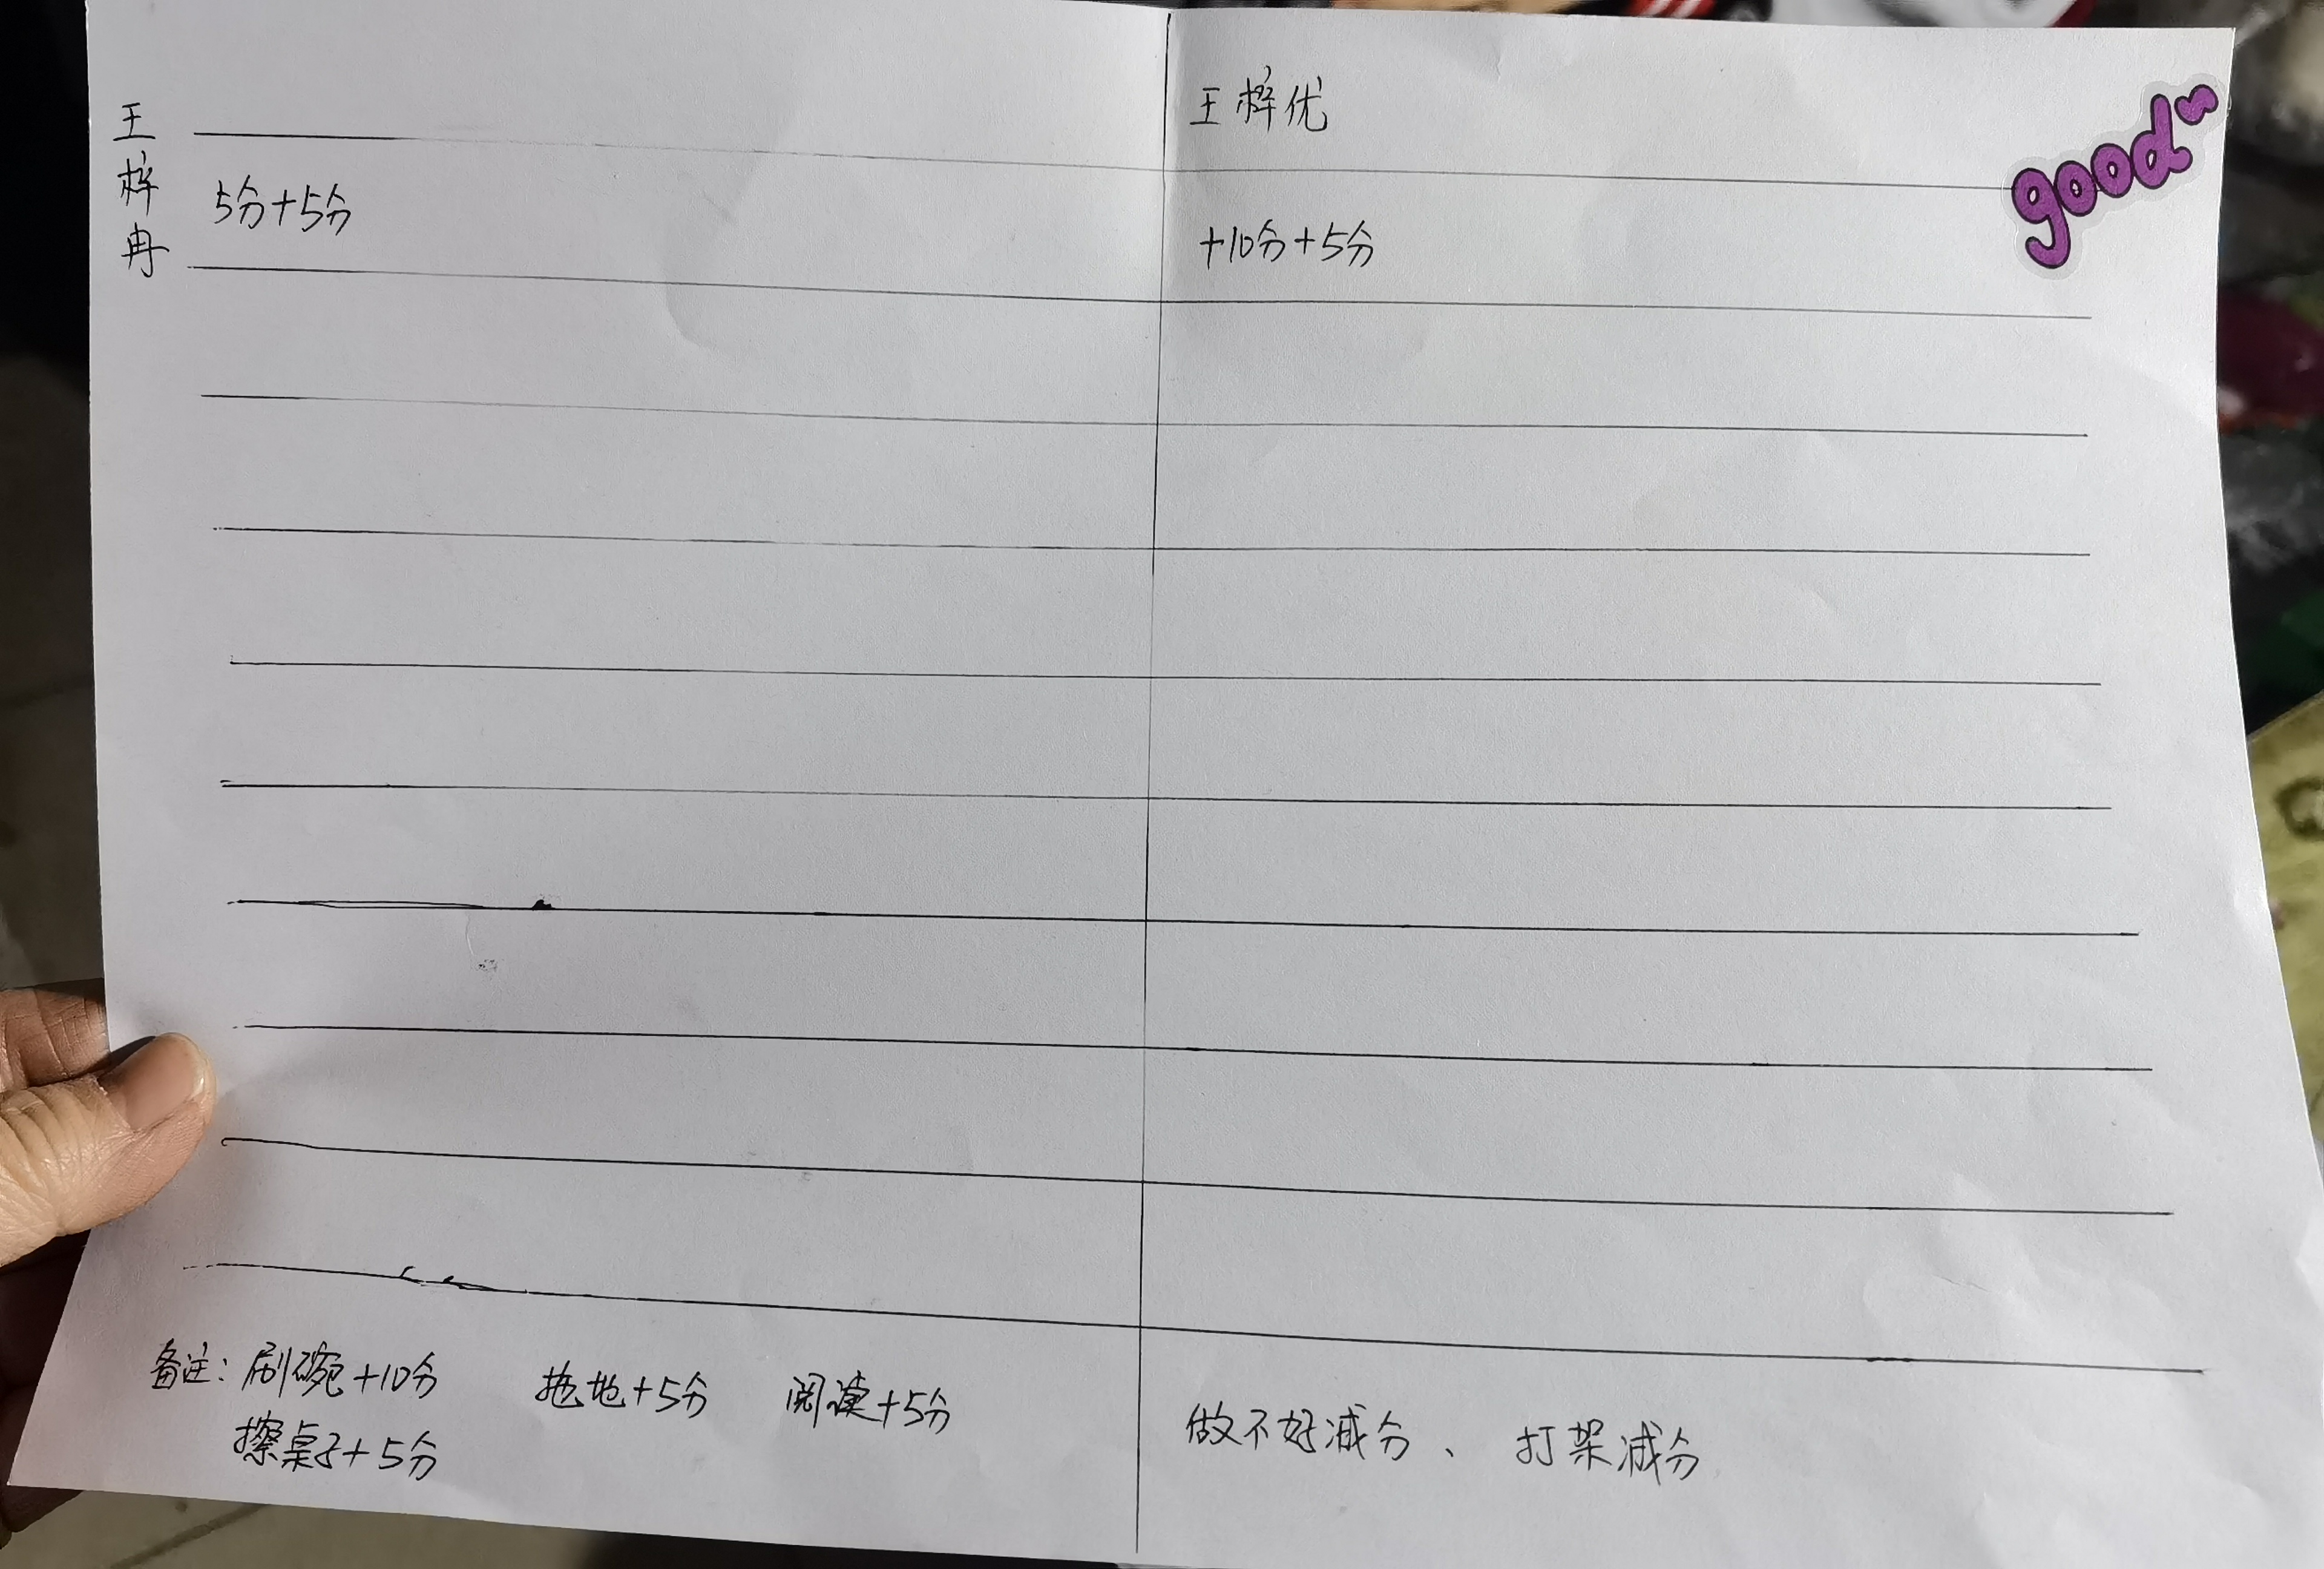 王梓冉
5分+5分
王梓优
good~
+10分+5分
备注：刷碗+10分 拖地+5分 阅读+5分
擦桌子+5分
做不好减分、 打架减分